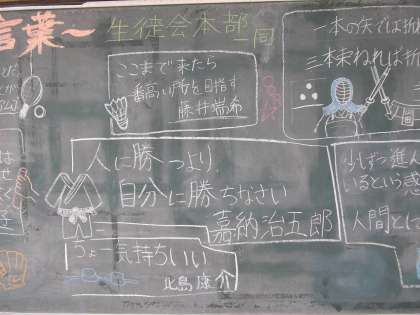 言葉〜
生徒会本部
ここまで来たら
一番高い所を目指す
藤井瑞希
一本の矢では折
三本束ねれば折
人に勝つより、
自分に勝ちなさい
嘉納治五郎
少しずつ進ん
いるという感
人間とし
ちょー気持ちいい
北島康介